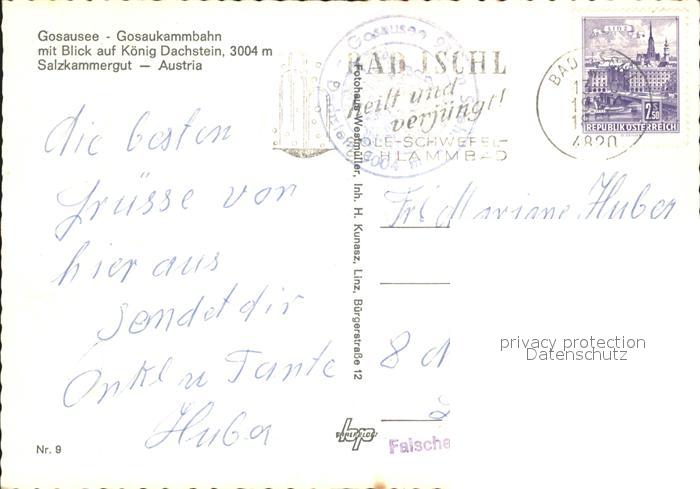 Gosausee - Gosaukammbahn
mit Blick auf König Dachstein, 3004 m
Salzkammergut — Austria
die besten
Grüsse von
hier aus
sendet dir
Onkl u Tante
Huber
Nr. 9
Fotohaus-Westmüller, Inh. H. Kunasz, Linz, Bürgerstraße 12
Gosausee
3004 m
BAD ISCHL
heilt und
verjüngt!
SOLE-SCHWEFEL-
SCHLAMMBAD
BAD
4820
LINZ
2.50
REPUBLIK ÖSTERREICH
Huber
8
privacy protection
Datenschutz
Falsche